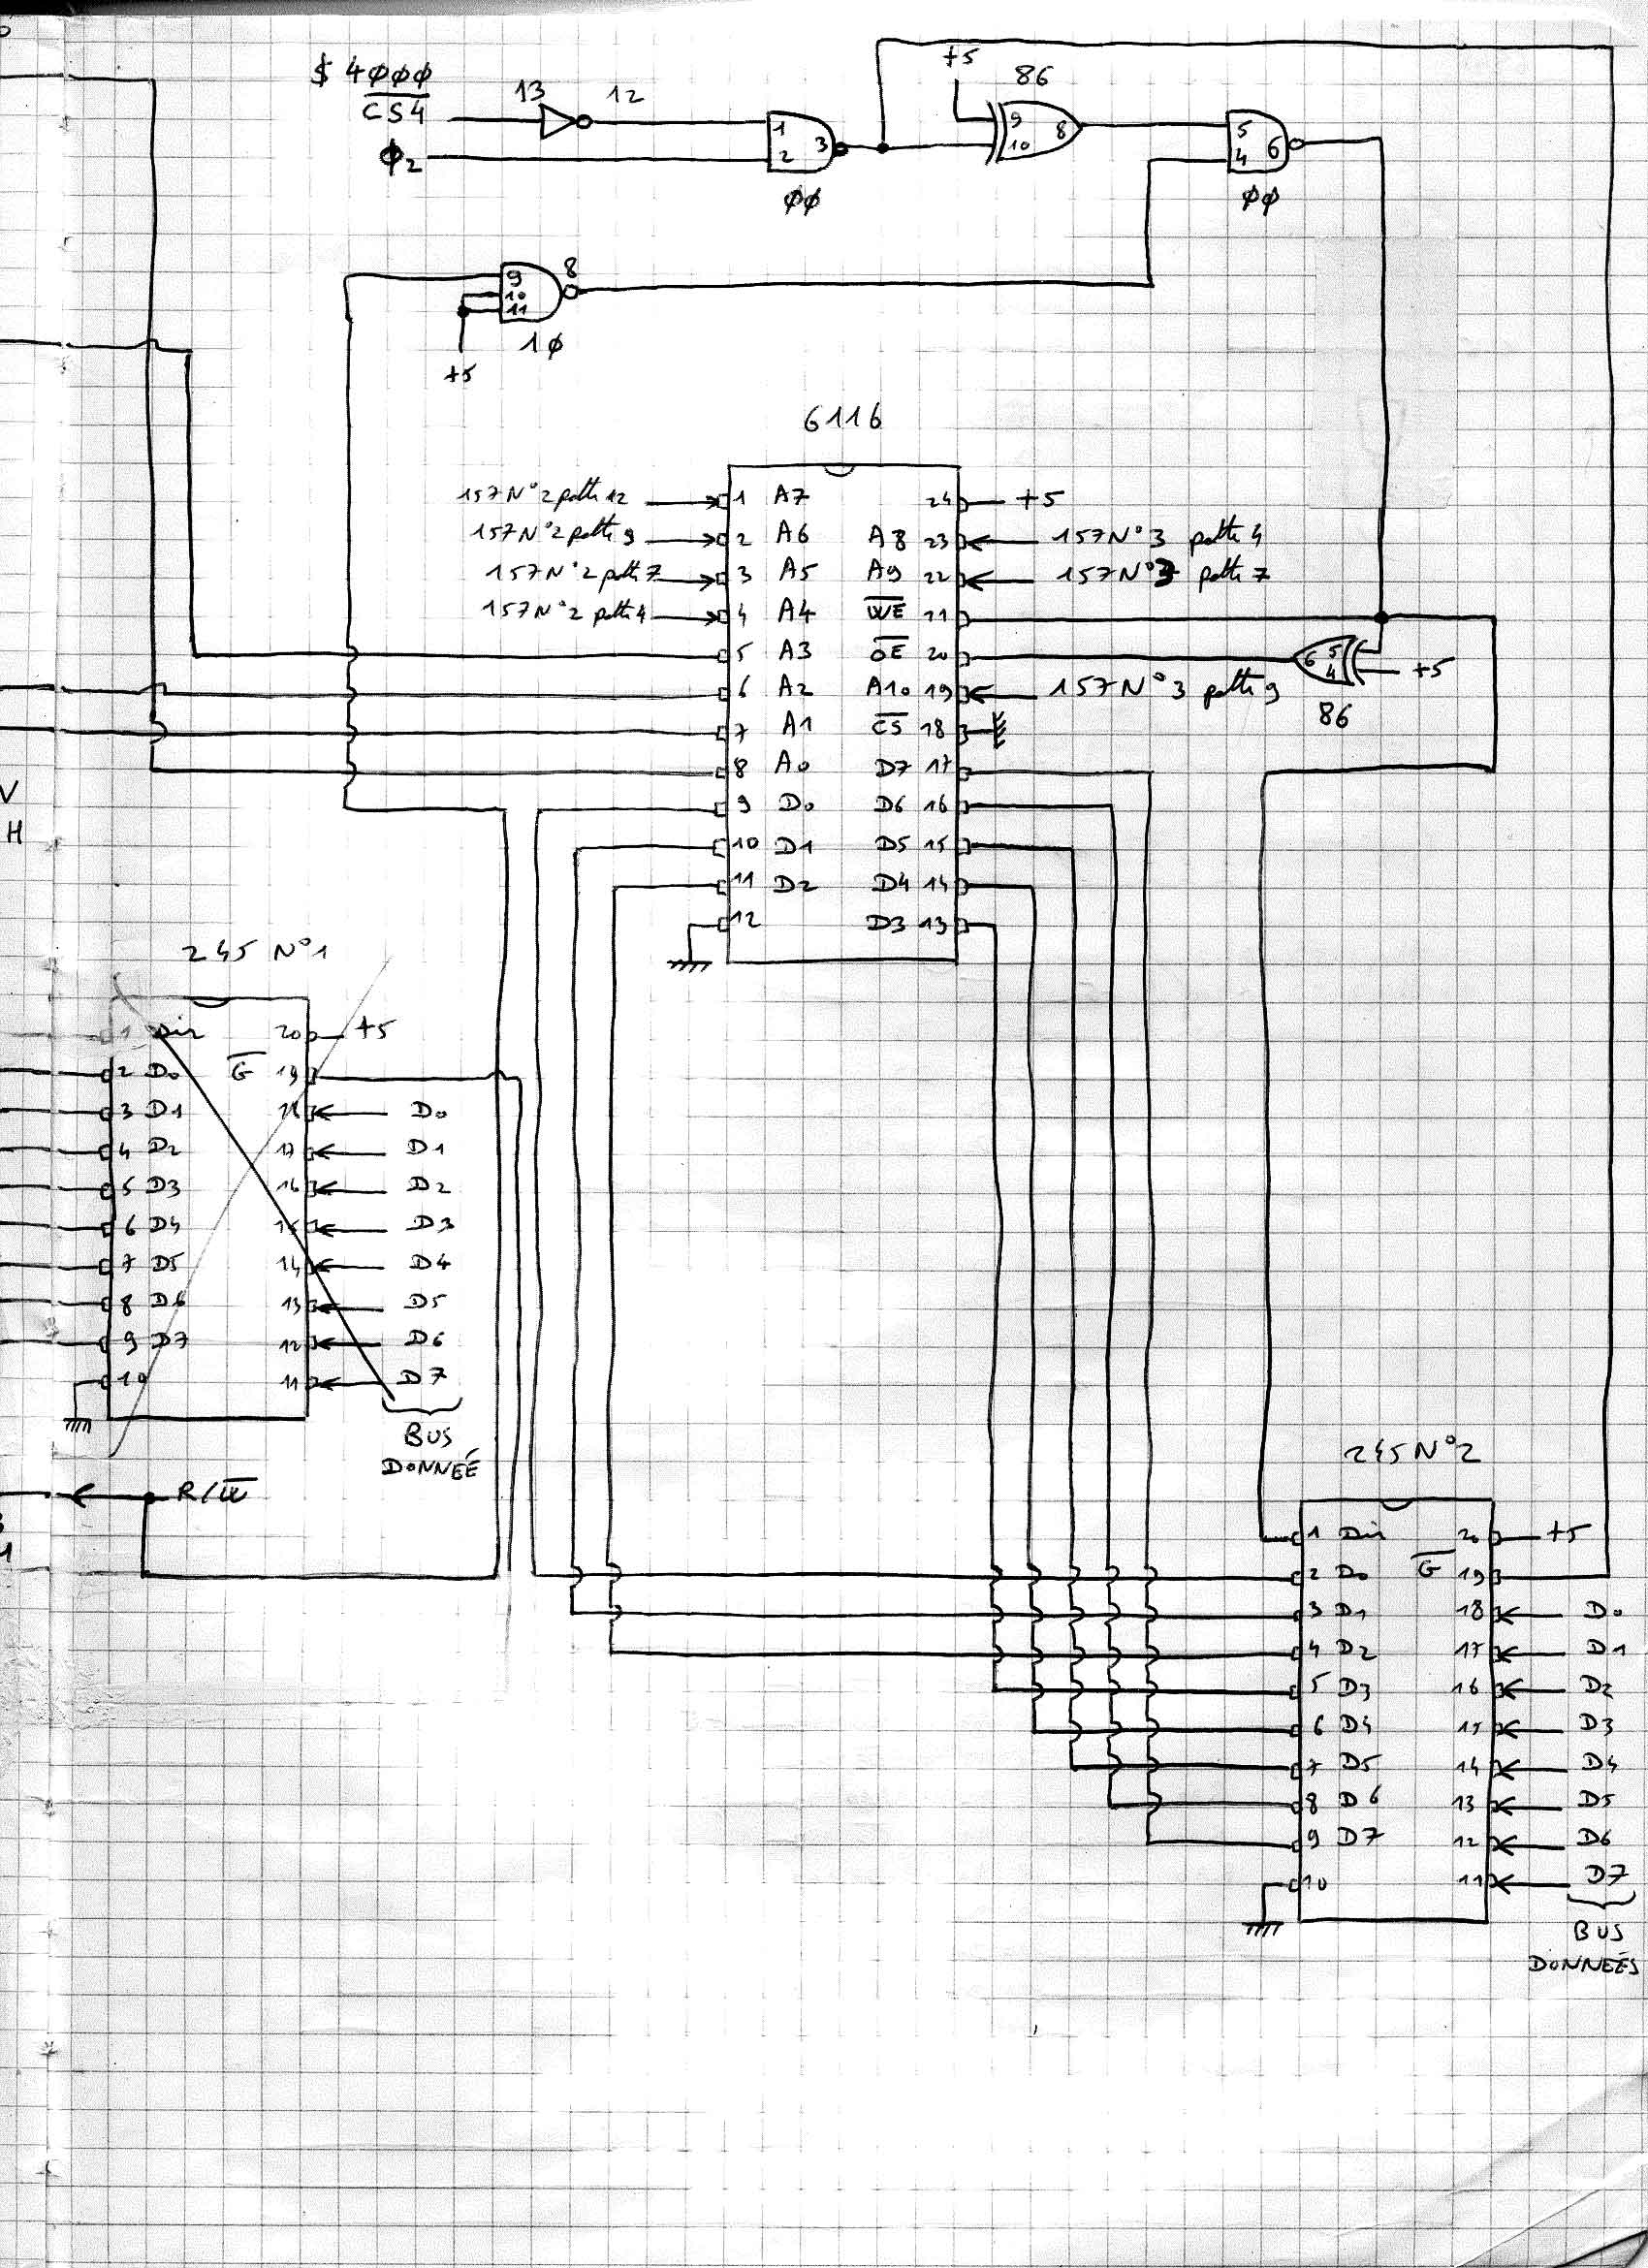 $ 4φφφ
CS4
φ2
13 12
1
2
3
φφ
+5
86
9
10
8
5
4
6
φφ
9
10
11
8
1φ
+5
6116
157N°2 patte 12 1 A7 24 +5
157N°2 patte 9 2 A6 A8 23 157N°3 patte 4
157N°2 patte 7 3 A5 A9 22 157N°3 patte 7
157N°2 patte 4 4 A4 WE 21
5 A3 OE 20 6 5 4 +5
6 A2 A10 19 157N°3 patte 9
86
7 A1 CS 18
8 A0 D7 17
9 D0 D6 16
10 D1 D5 15
11 D2 D4 14
12 D3 13
V
H
245 N°1
1 Dir 20 +5
2 D0 G 19
3 D1 18 D0
4 D2 17 D1
5 D3 16 D2
6 D4 15 D3
7 D5 14 D4
8 D6 13 D5
9 D7 12 D6
10 11 D7
BUS
DONNEÉ
R/W
245 N°2
1 Dir 20 +5
2 D0 G 19
3 D1 18 D0
4 D2 17 D1
5 D3 16 D2
6 D4 15 D3
7 D5 14 D4
8 D6 13 D5
9 D7 12 D6
10 11 D7
BUS
DONNEÉS